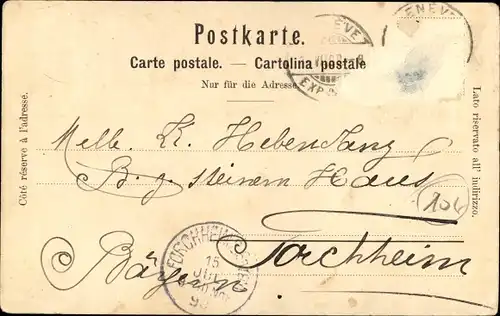 Postkarte.
Carte postale. — Cartolina postale
Nur für die Adresse
Côté réservé à l'adresse.
Lato riservato all' indirizzo.
GENÈVE
EXP.
Melle. K. Hebendanz
B. z. steinern Haus
104
Forchheim
Bayern
FORCHHEIM
15
JUL